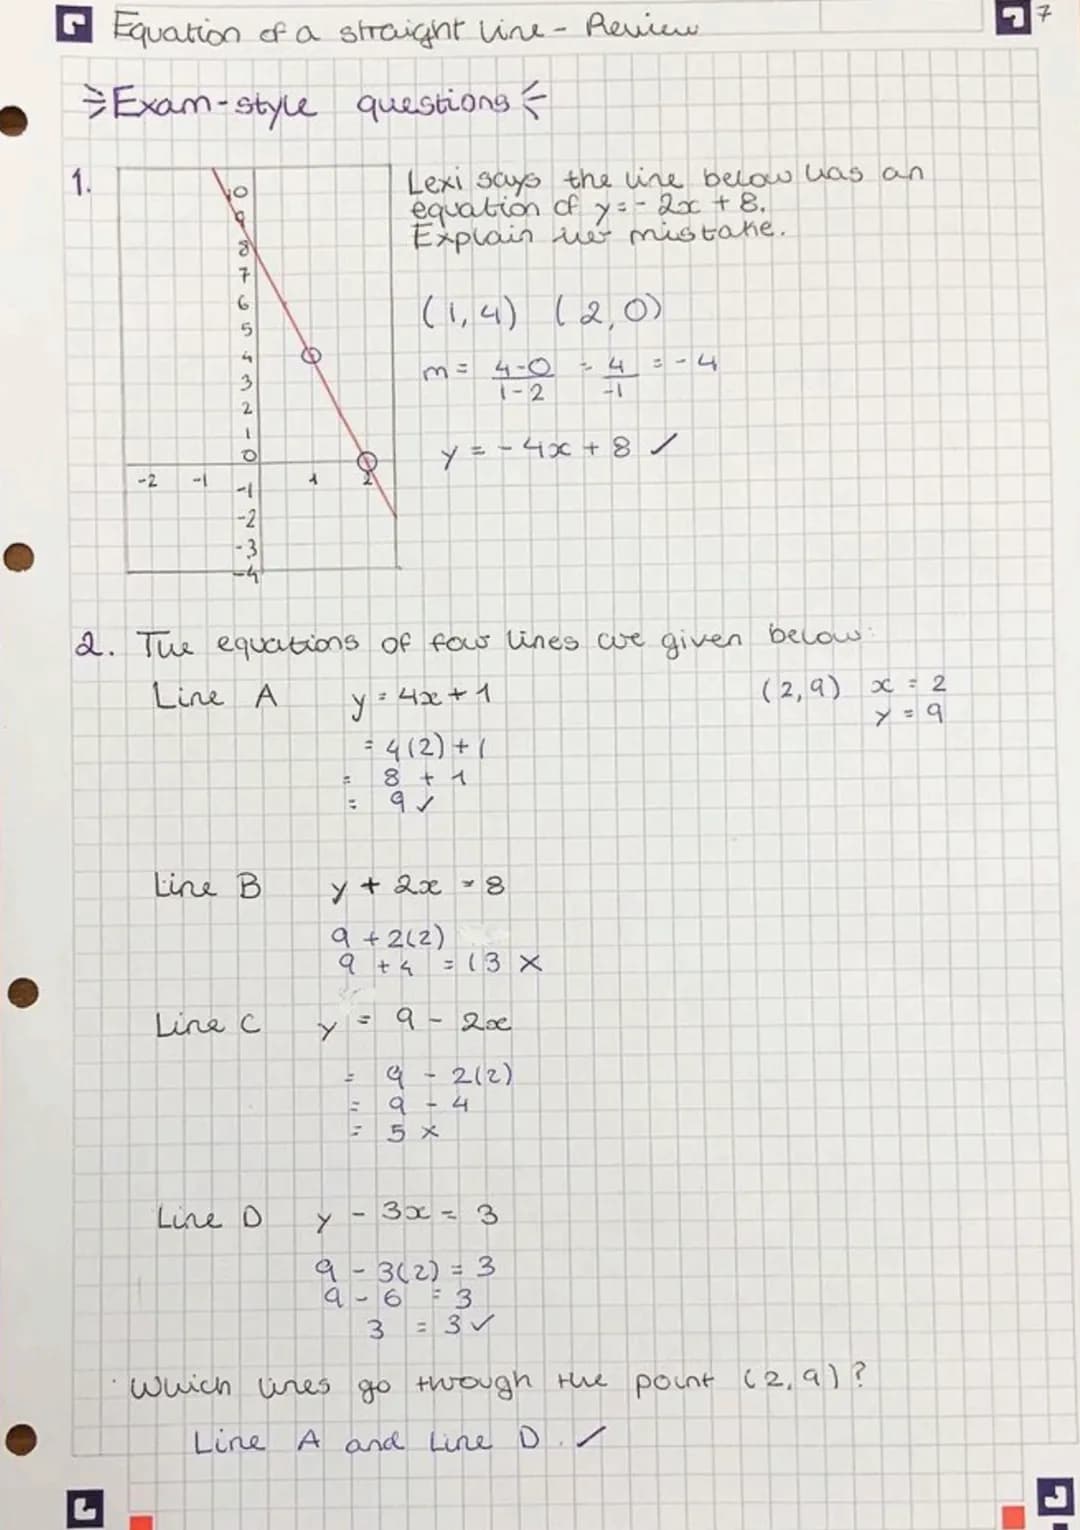 Equation of a straight line - Review
7
Exam-style questions
1.
10
9
8
7
6
5
4
3
2
1
0
-2 -1 1 2
-1
-2
-3
-4
Lexi says the line below has an
equation of y = - 2x + 8.
Explain her mistake.
(1,4) (2,0)
m = 4-0/1-2 = 4/-1 = -4
y = -4x + 8 ✓
2. The equations of four lines are given below:
Line A y = 4x + 1
(2,9) x = 2
y = 9
= 4(2) + 1
= 8 + 1
= 9 ✓
Line B y + 2x = 8
9 + 2(2)
9 + 4 = 13 ×
Line C y = 9 - 2x
= 9 - 2(2)
= 9 - 4
= 5 ×
Line D y - 3x = 3
9 - 3(2) = 3
9 - 6 = 3
3 = 3 ✓
Which lines go through the point (2,9)?
Line A and Line D. ✓